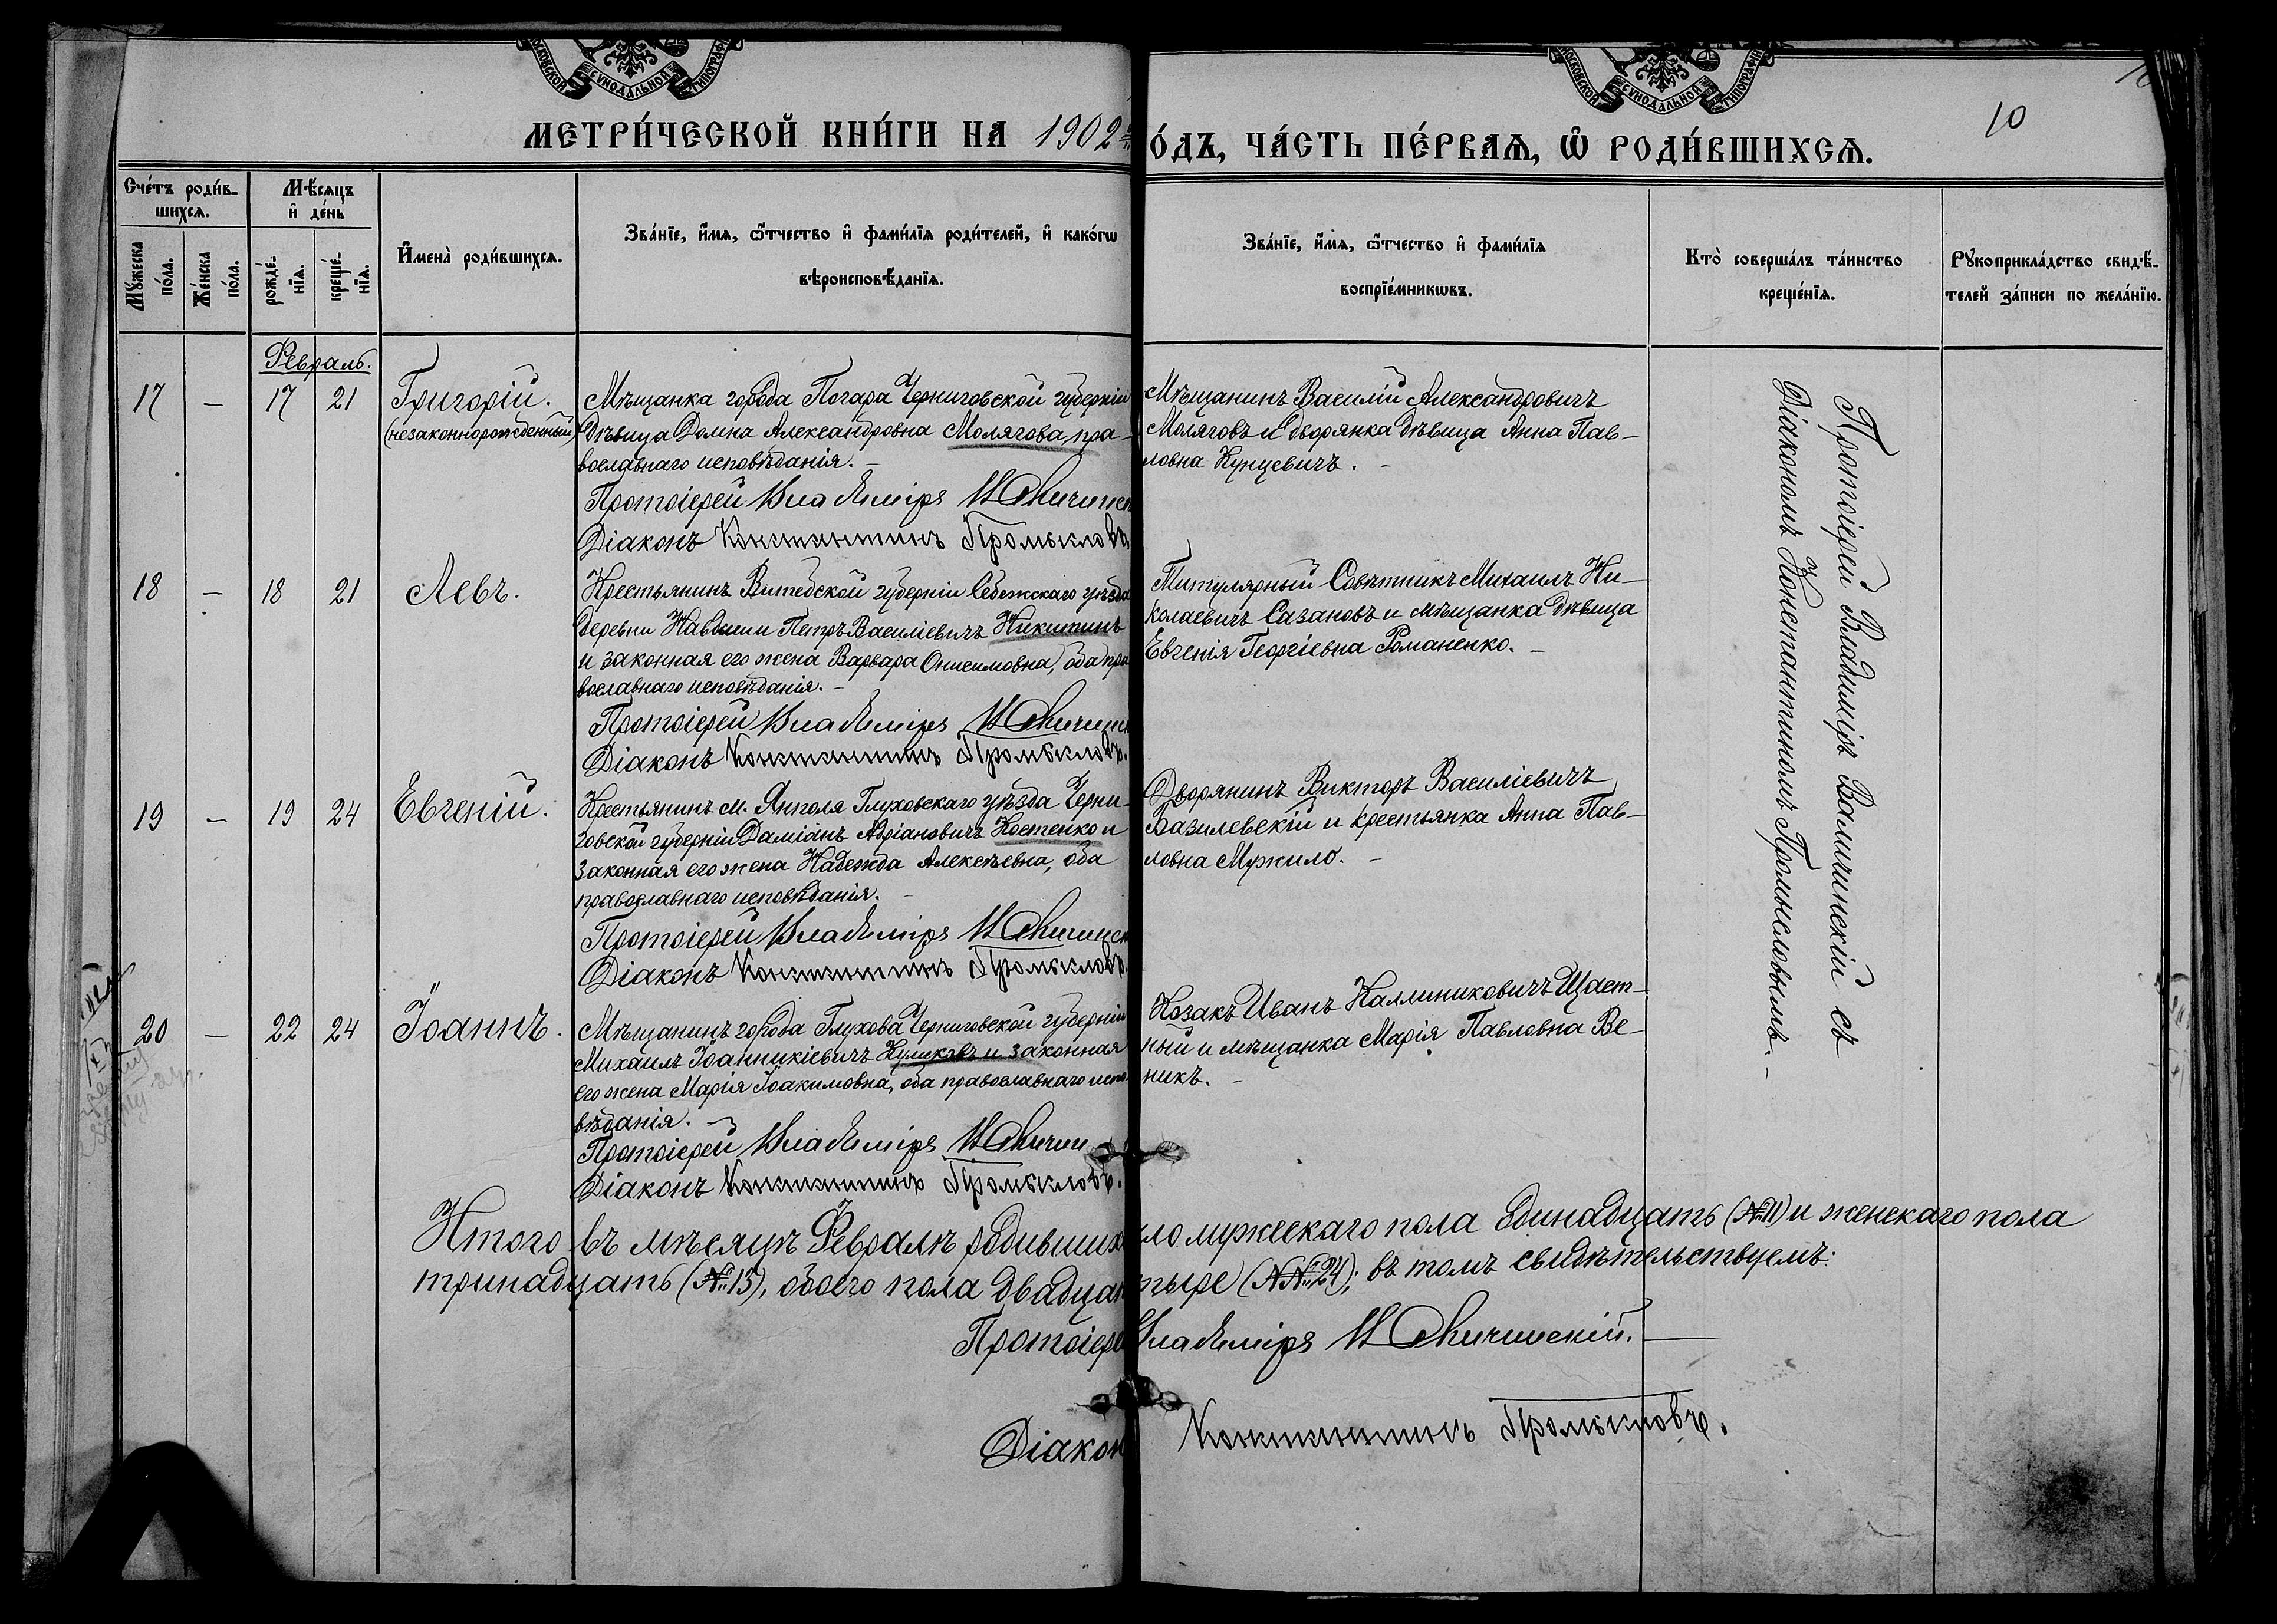 МОСКОВСКОЙ СѴНОДАЛЬНОЙ ТИПОГРАФІИ
МОСКОВСКОЙ СѴНОДАЛЬНОЙ ТИПОГРАФІИ
10
МЕТРИ́ЧЕСКОЙ КНИ́ГИ НА 1902
О́ДЪ, ЧА́СТЬ ПЕ́РВАѦ, Ѡ҆ РОДИ́ВШИХСѦ.
Сче́тъ роди́в-
шихсѧ.
Мѣ́сѧцъ
и҆ де́нь
Мꙋ́жеска
по́ла.
Же́нска
по́ла.
рожде́-
нїѧ.
креще́-
нїѧ.
И҆мена̀ роди́вшихсѧ.
Зва́нїе, и҆́мѧ, ѻ҆́тчество и҆ фами́лїѧ роди́телей, и҆ како́гѡ
вѣроисповѣ́данїѧ.
Зва́нїе, и҆́мѧ, ѻ҆́тчество и҆ фами́лїѧ
воспрїе́мникѡвъ.
Кто̀ соверша́лъ та́инство
креще́нїѧ.
Рꙋкоприкла́дство свидѣ́-
телей за́писи по жела́нїю.
Февраль.
17 — 17 21 Григорій.
(незаконнорожденный)
Мѣщанка города Погара Черниговской губерніи
дѣвица Домна Александровна Молягова, пра-
вославнаго исповѣданія. —
Протоіерей Владиміръ
Діаконъ Константинъ Промысловъ.
Мѣщанинъ Василій Александровичъ
Моляговъ и дворянка дѣвица Анна Пав-
ловна Кунцевичъ. —
18 — 18 21 Левъ.
Крестьянинъ Витебской губерніи Себежскаго уѣзда
деревни Петръ Василіевичъ Никитинъ
и законная его жена Варвара Онисимовна, оба пра
вославнаго исповѣданія. —
Протоіерей Владиміръ
Діаконъ Константинъ Промысловъ.
Титулярный Совѣтникъ Михаилъ Ни-
колаевичъ Сазановъ и мѣщанка дѣвица
Евгенія Георгіевна Романенко. —
19 — 19 24 Евгеній.
Крестьянинъ м. Янполя Глуховскаго уѣзда Черни-
говской губерніи Даміанъ Адріановичъ Костенко и
законная его жена Надежда Алексѣевна, оба
православнаго исповѣданія. —
Протоіерей Владиміръ
Діаконъ Константинъ Промысловъ.
Дворянинъ Викторъ Василіевичъ
Базилевскій и крестьянка Анна Пав-
ловна Мужило. —
20 — 22 24 Іоаннъ.
Мѣщанинъ города Глухова Черниговской губерніи
Михаилъ Іоанникіевичъ Куликовъ и законная
его жена Марія Іоакимовна, оба православнаго испо-
вѣданія. —
Протоіерей Владиміръ
Діаконъ Константинъ Промысловъ.
Козакъ Иванъ Каллиниковичъ Щаст-
ный и мѣщанка Марія Павловна Ве-
никъ. —
Протоіерей Владиміръ съ
Діакономъ Константиномъ Промысловымъ. —
Итого въ мѣсяцѣ Февралѣ родивших ло мужескаго пола одинадцать (№ 11) и женскаго пола
тринадцать (№ 13), обоего пола двадцат тыре (№№ 24); въ томъ свидѣтельствуемъ:
Протоіере Владиміръ
Діакон Константинъ Промысловъ.